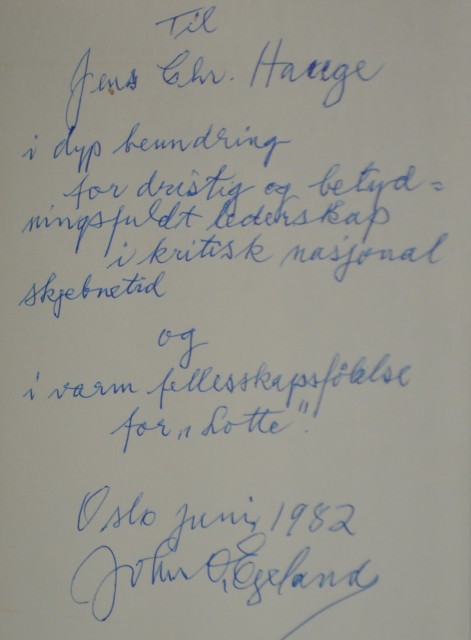 Til
Jens Chr. Hauge
i dyp beundring
for dristig og betyd=
ningsfuldt lederskap
i kritisk nasjonal
skjebnetid
og
i varm fellesskapsfölelse
for „Lotte".
Oslo juni, 1982
John O, Egeland